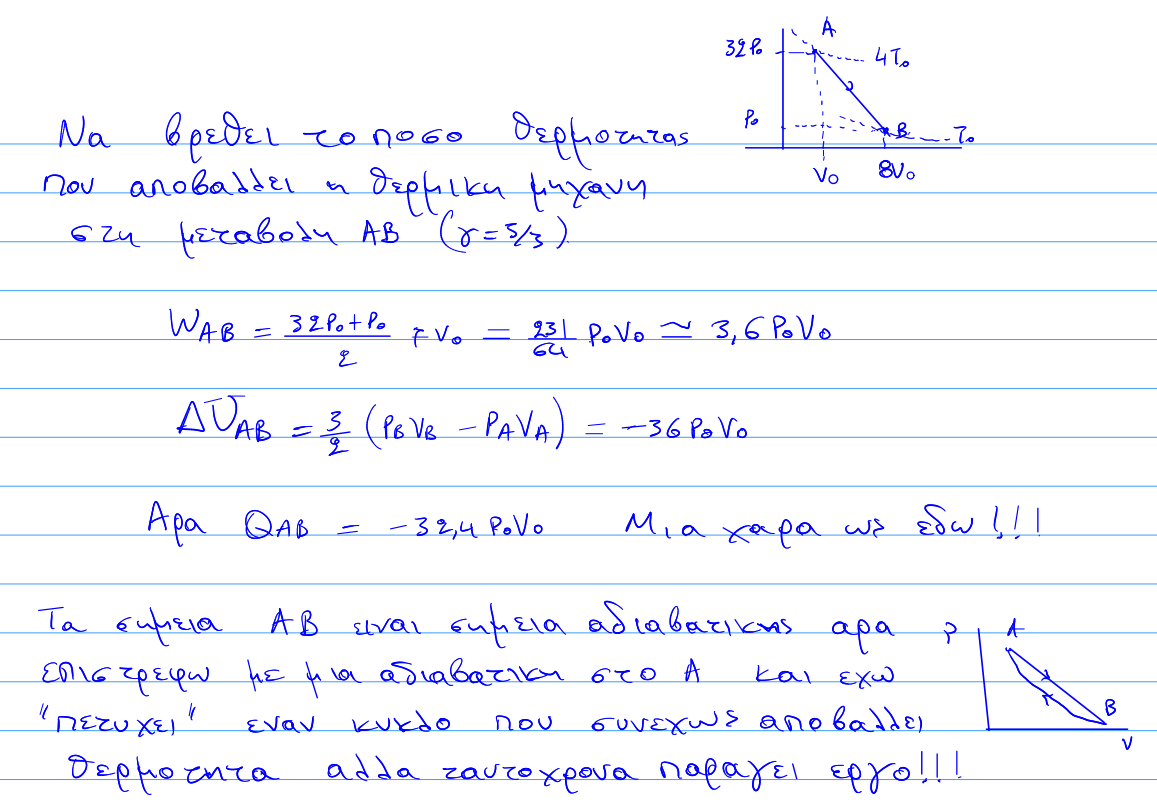 A
32P₀
4T₀
P₀
B
T₀
V₀
8V₀
Να βρεθει το ποσο θερμοτητας
που αποβαλλει η θερμικη μηχανη
στη μεταβολη AB (γ=5/3)
W_AB = (32P₀+P₀)/2 7V₀ = 231/64 P₀V₀ ≃ 3,6 P₀V₀
ΔU_AB = 3/2 (P_BV_B - P_AV_A) = -36 P₀V₀
Αρα Q_AB = -32,4 P₀V₀ Μια χαρα ως εδω!!!
Τα σημεια AB ειναι σημεια αδιαβατικης αρα
επιστρεφω με μια αδιαβατικη στο A και εχω
"πετυχει" εναν κυκλο που συνεχως αποβαλλει
θερμοτητα αλλα ταυτοχρονα παραγει εργο!!!
P
A
B
V